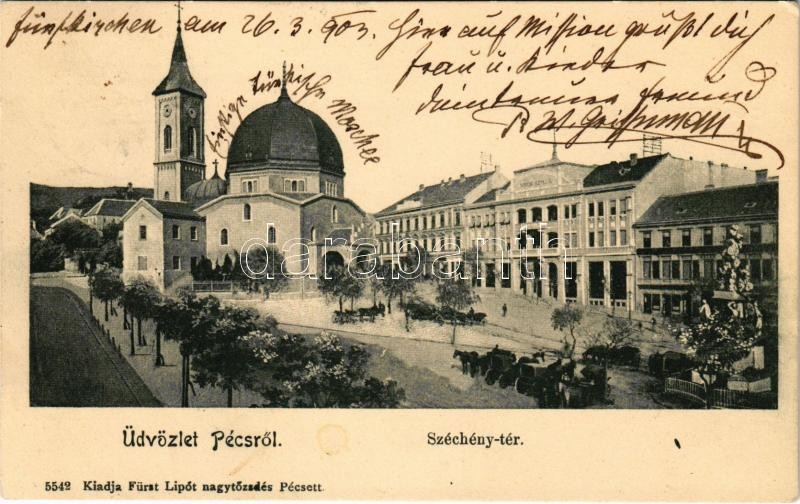 Fünfkirchen am 26. 3. 903. Hier auf Mission grüßt dich
Frau u. Kinder
dein treuer Freund
W.
türkische Moschee
darabanth.com
Üdvözlet Pécsről.
Széchény-tér.
5542 Kiadja Fürst Lipót nagytőzsdés Pécsett.